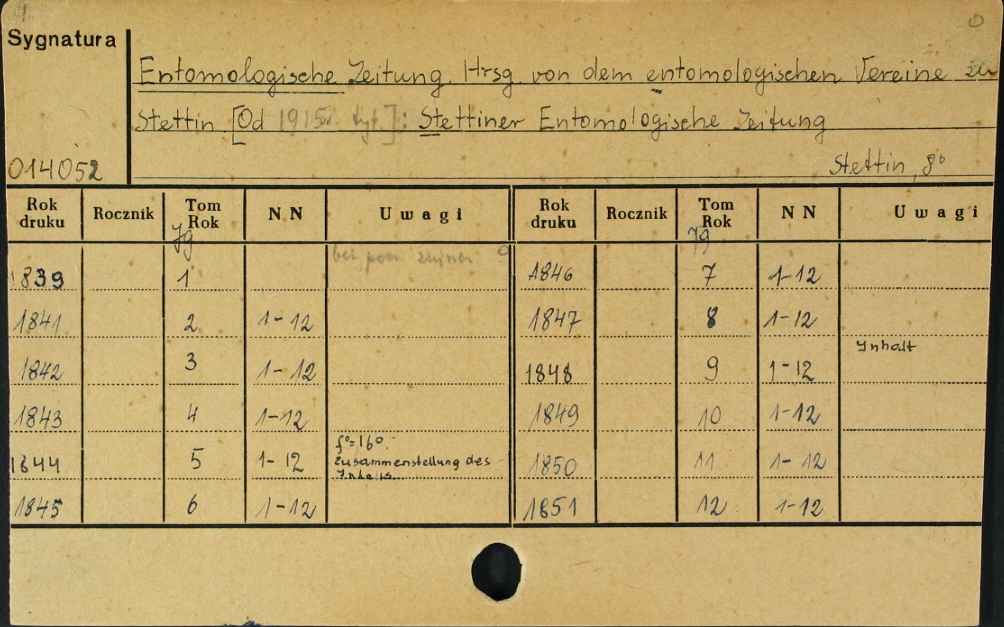 Sygnatura
Entomologische Zeitung. Hrsg. von dem entomologischen Vereine zu
Stettin. [Od 1915]: Stettiner Entomologische Zeitung
014052
Stettin, 8°
Rok druku Rocznik Tom Rok NN Uwagi Rok druku Rocznik Tom Rok NN Uwagi
Jg Jg
1839 1 1846 7 1-12
1841 2 1-12 1847 8 1-12
1842 3 1-12 1848 9 1-12 Inhalt
1843 4 1-12 1849 10 1-12
1844 5 1-12 f°=16°. 1850 11 1-12
Zusammenstellung des
Inhalts
1845 6 1-12 1851 12 1-12